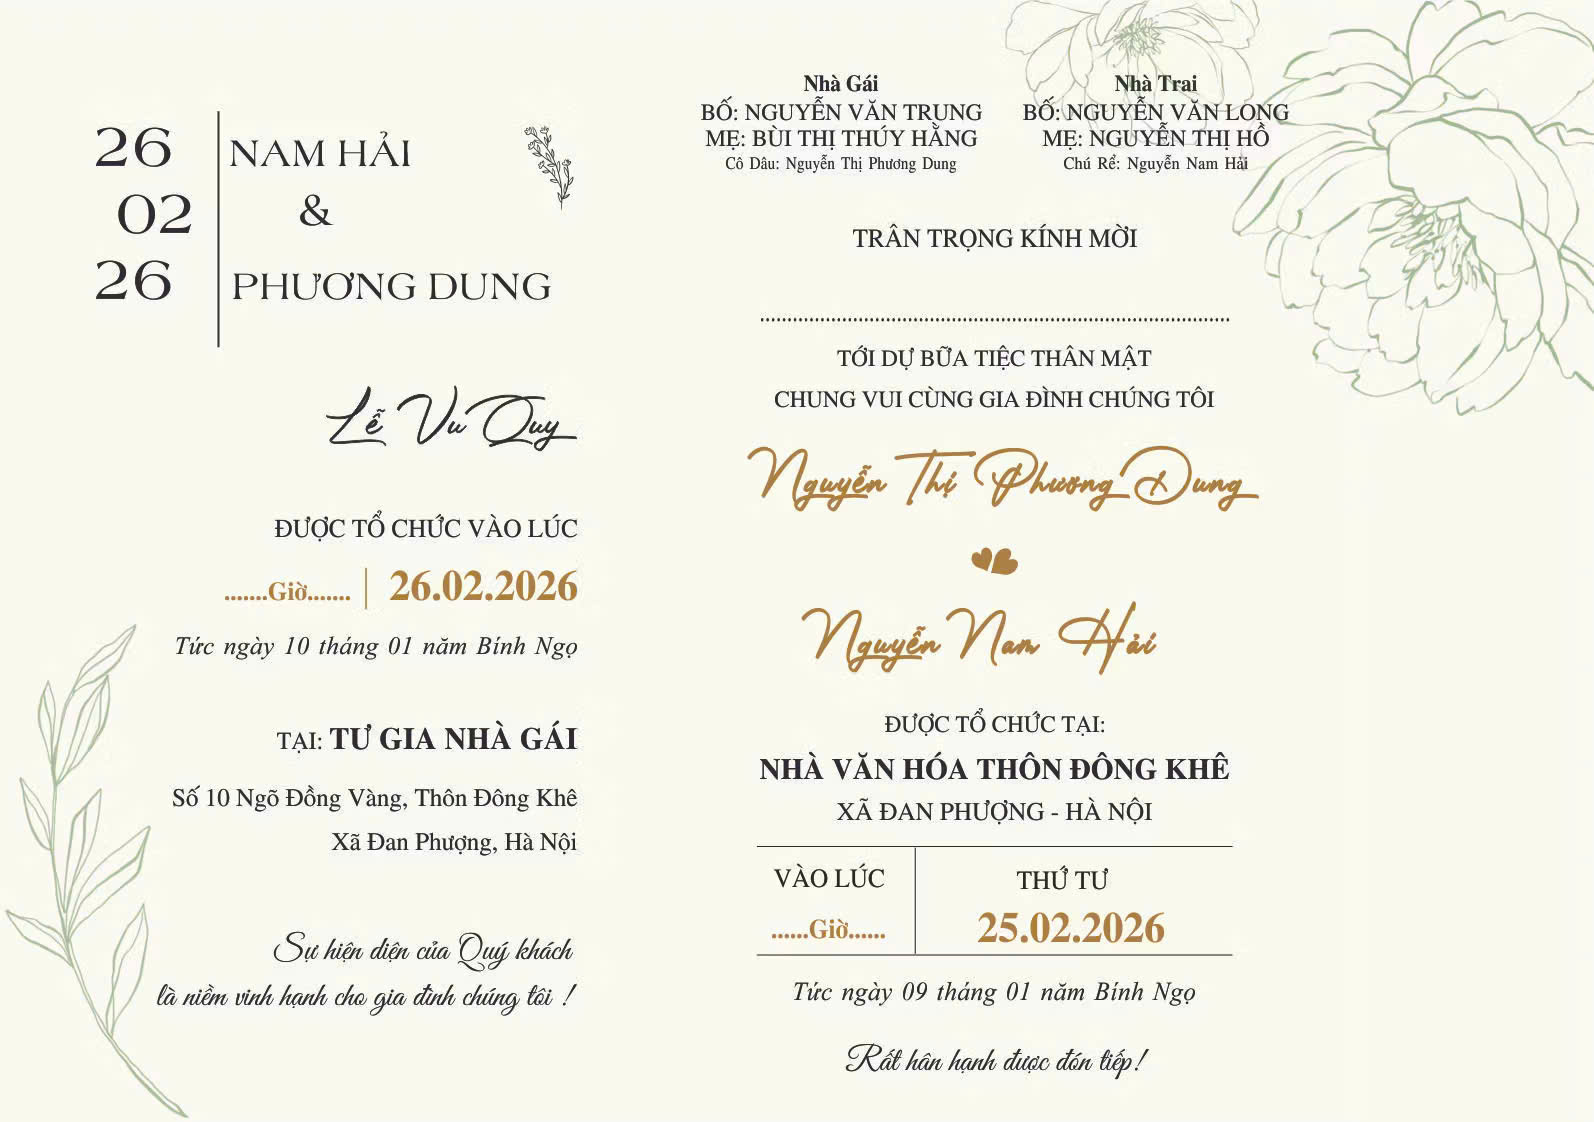 26
02
26
NAM HẢI
&
PHƯƠNG DUNG
Lễ Vu Quy
ĐƯỢC TỔ CHỨC VÀO LÚC
.......Giờ....... | 26.02.2026
Tức ngày 10 tháng 01 năm Bính Ngọ
TẠI: TƯ GIA NHÀ GÁI
Số 10 Ngõ Đồng Vàng, Thôn Đông Khê
Xã Đan Phượng, Hà Nội
Sự hiện diện của Quý khách
là niềm vinh hạnh cho gia đình chúng tôi !
Nhà Gái
BỐ: NGUYỄN VĂN TRUNG
MẸ: BÙI THỊ THÚY HẰNG
Cô Dâu: Nguyễn Thị Phương Dung
Nhà Trai
BỐ: NGUYỄN VĂN LONG
MẸ: NGUYỄN THỊ HỒ
Chú Rể: Nguyễn Nam Hải
TRÂN TRỌNG KÍNH MỜI
................................................................................
TỚI DỰ BỮA TIỆC THÂN MẬT
CHUNG VUI CÙNG GIA ĐÌNH CHÚNG TÔI
Nguyễn Thị Phương Dung
Nguyễn Nam Hải
ĐƯỢC TỔ CHỨC TẠI:
NHÀ VĂN HÓA THÔN ĐÔNG KHÊ
XÃ ĐAN PHƯỢNG - HÀ NỘI
VÀO LÚC
......Giờ......
THỨ TƯ
25.02.2026
Tức ngày 09 tháng 01 năm Bính Ngọ
Rất hân hạnh được đón tiếp!